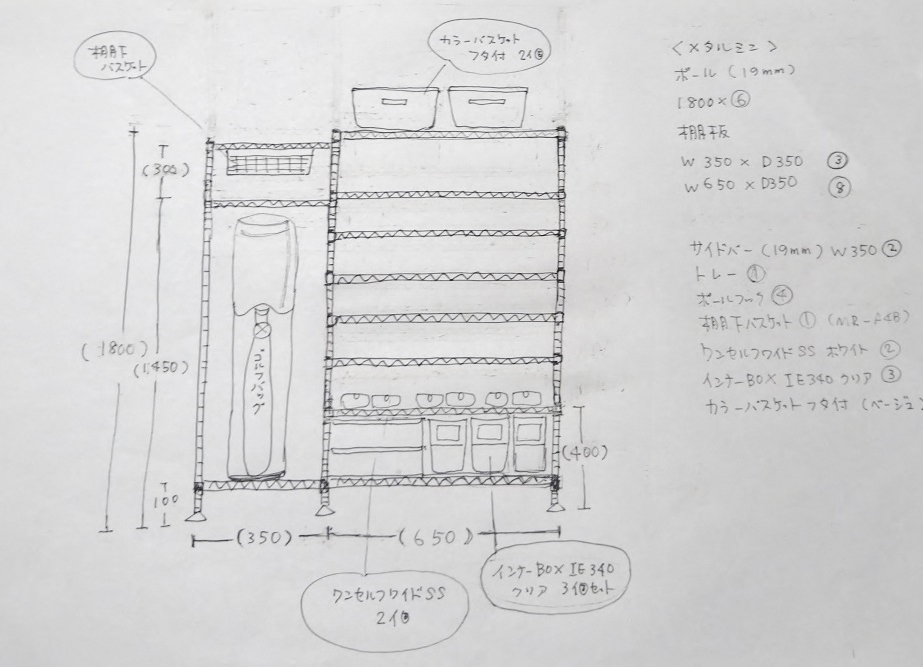 棚下
バスケット
カラーバスケット
フタ付 2個
(300)
(1800)
(1,450)
100
ゴルフバッグ
(400)
(350)
(650)
ワンセルフワイドSS
2個
インナーBOX IE340
クリア 3個セット
<メタルミニ>
ポール (19mm)
1800×⑥
棚板
W 350 × D350 ③
W650 × D350 ⑧
サイドバー (19mm) W350 ②
トレー ①
ポールフック ④
棚下バスケット ① (MR-F4B)
ワンセルフワイドSS ホワイト ②
インナーBOX IE340 クリア ③
カラーバスケットフタ付 (ベージュ)